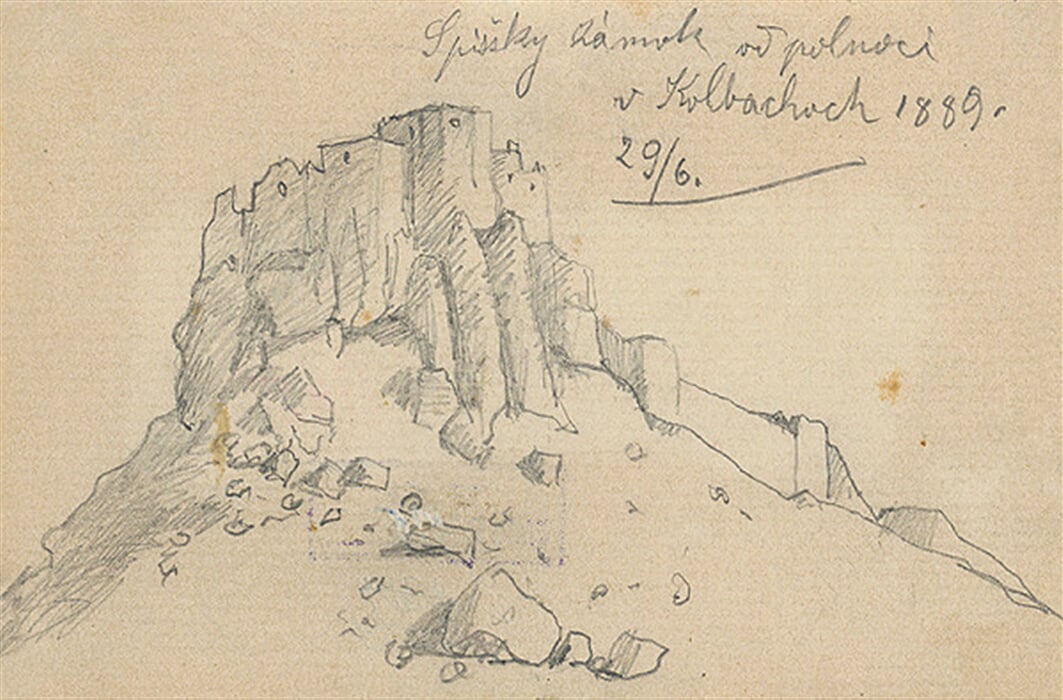 Spišsky zámok od polnoci
v Kolbachoch 1889.
29/6.